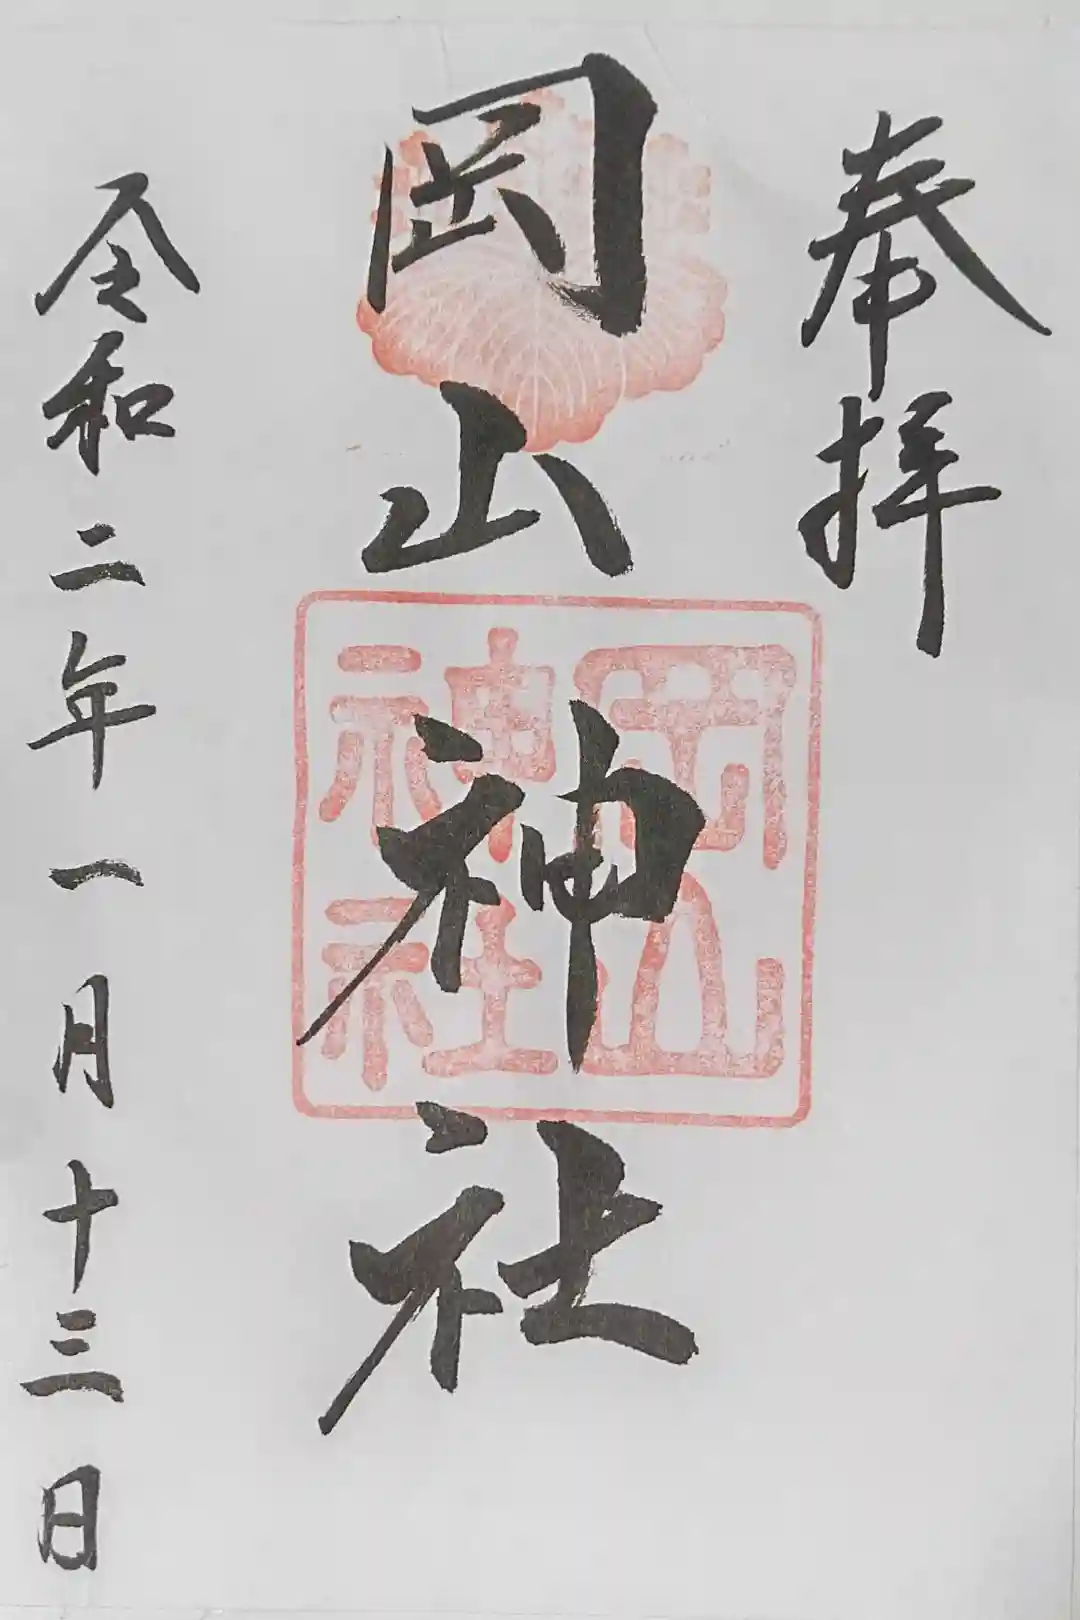 奉拝
岡山神社
岡山
神社
令和二年一月十三日